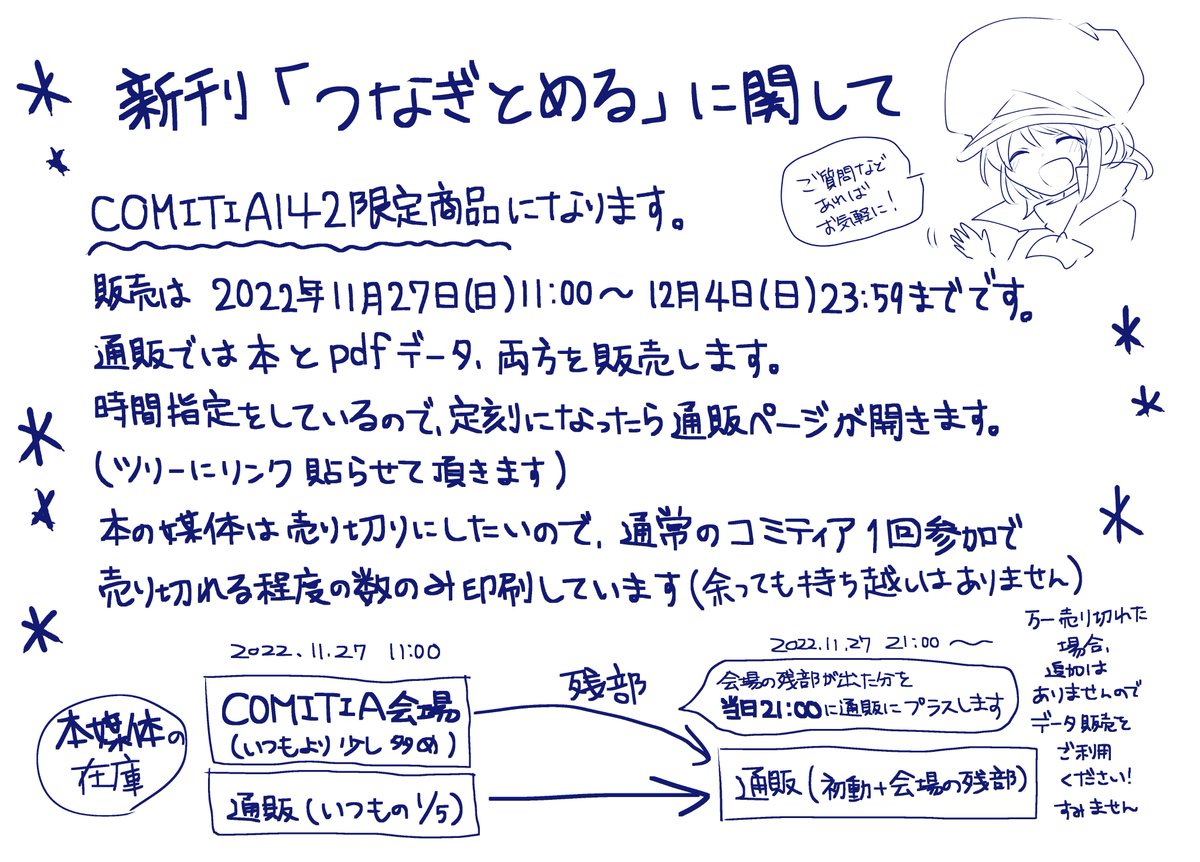 新刊「つなぎとめる」に関して
ご質問など
あれば
お気軽に!
COMITIA142限定商品になります。
販売は 2022年11月27日(日)11:00〜12月4日(日)23:59までです。
通販では本とpdfデータ、両方を販売します。
時間指定をしているので、定刻になったら通販ページが開きます。
(ツリーにリンク貼らせて頂きます)
本の媒体は売り切りにしたいので、通常のコミティア1回参加で
売り切れる程度の数のみ印刷しています(余っても持ち越しはありません)
本媒体の
在庫
2022.11.27 11:00
COMITIA会場
(いつもより少し多め)
通販(いつもの1/5)
残部
2022.11.27 21:00 〜
会場の残部が出た分を
当日21:00に通販にプラスします
通販(初動+会場の残部)
万一売り切れた
場合、
追加は
ありませんので
データ販売を
ご利用
ください!
すみません